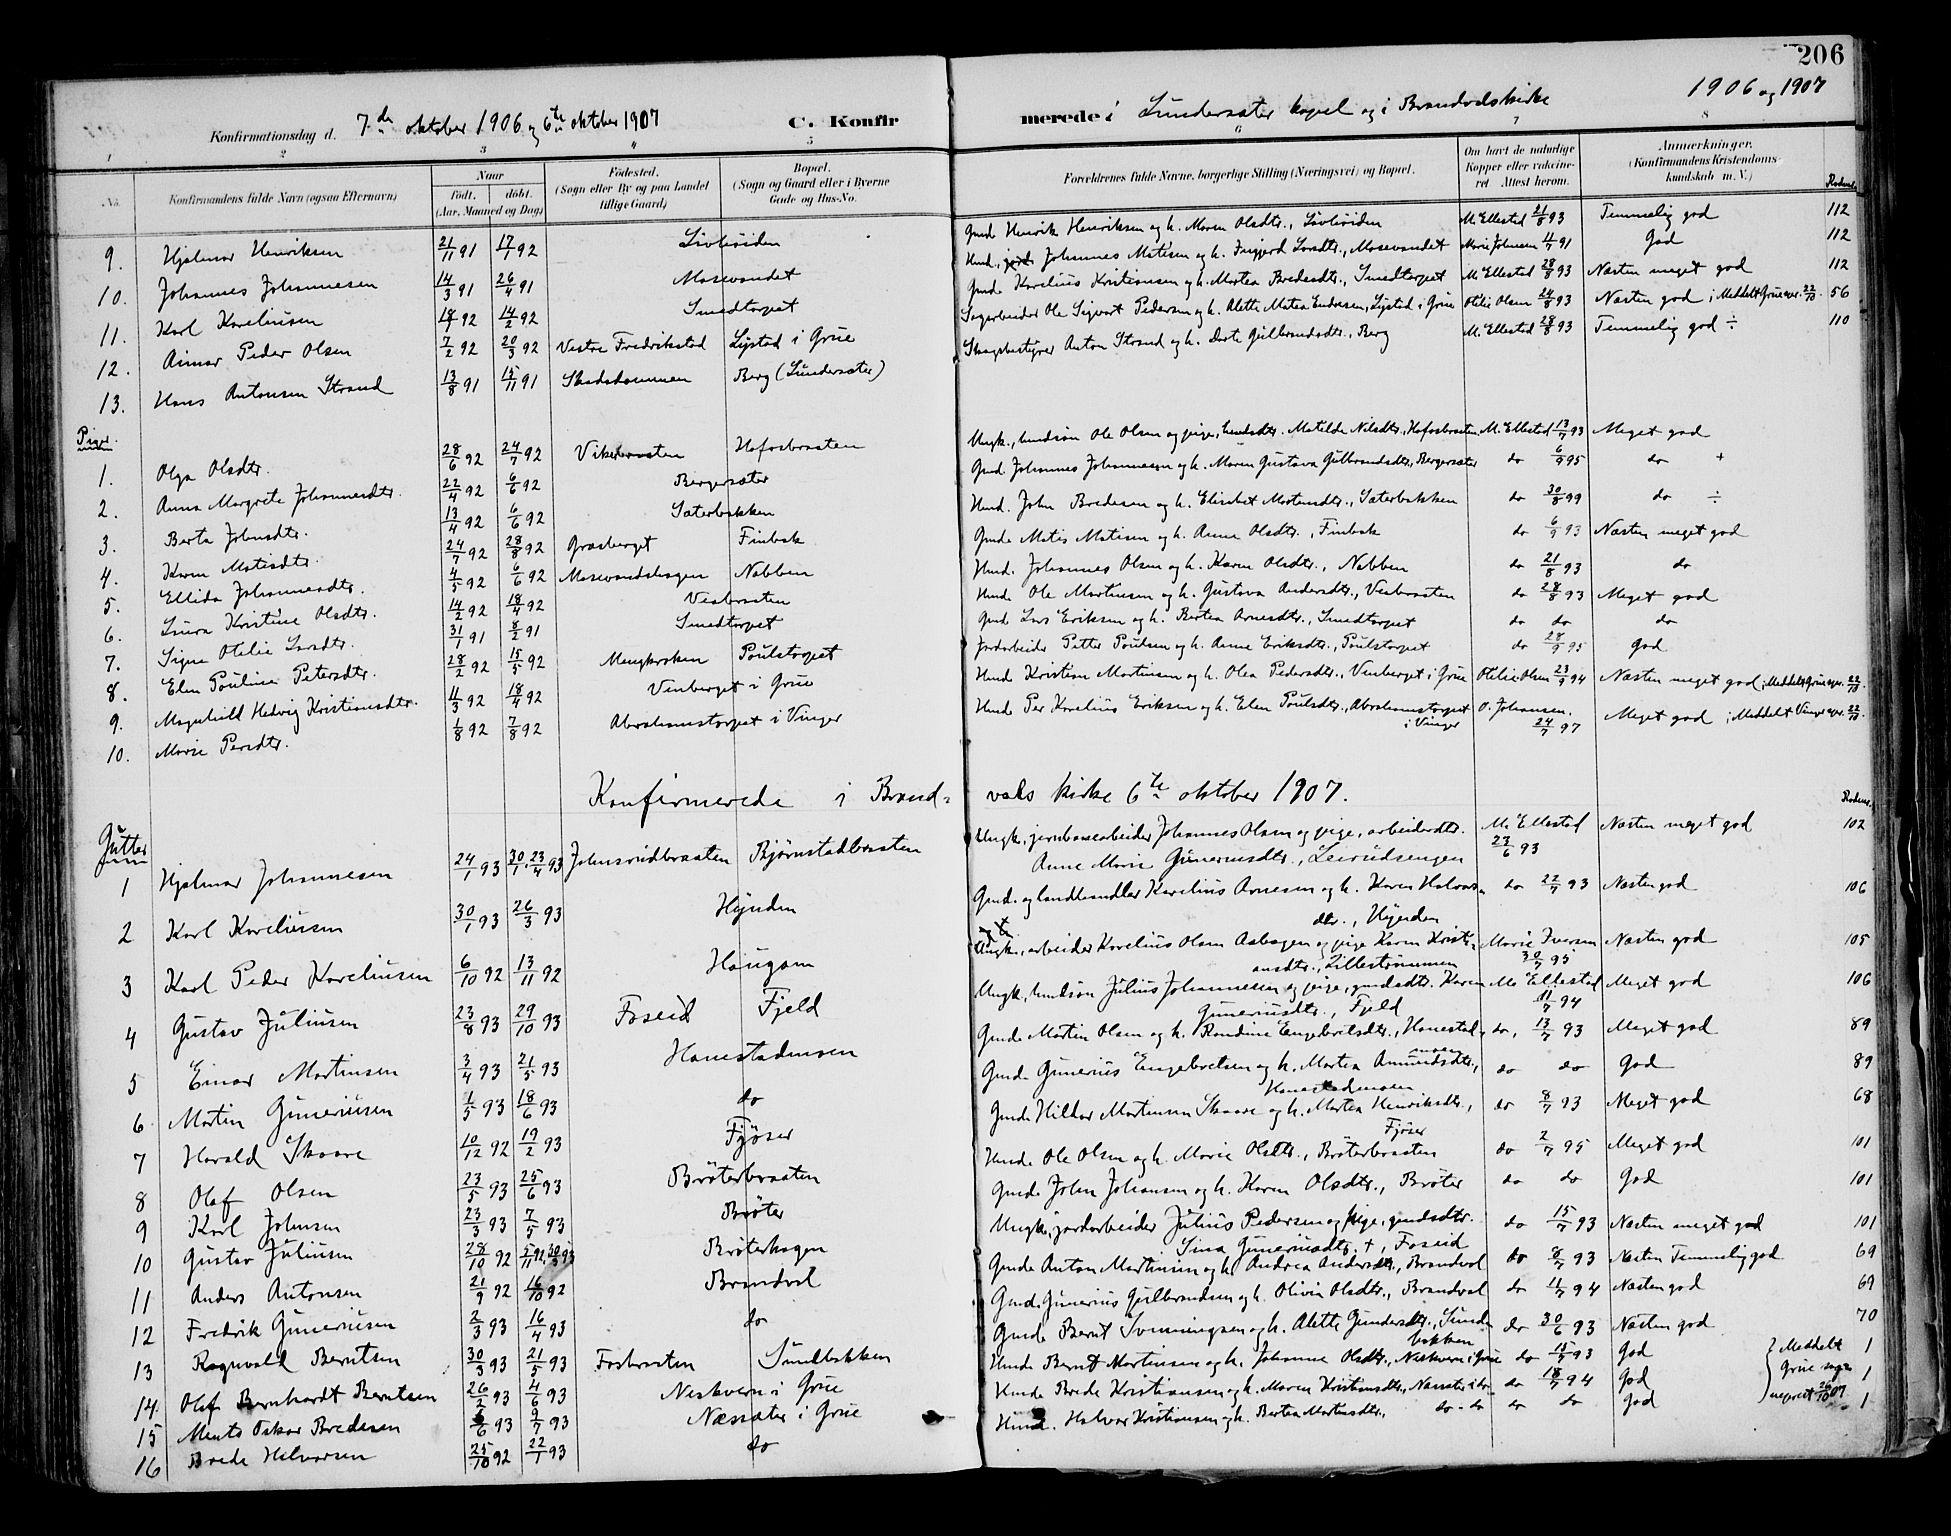 206
1906 og 1907
Konfirmationsdag d. 7de oktober 1906 og 6te oktober 1907 C. Konfirmerede i Lundersæter kapel og i Brandvals kirke
1 2 3 4 5 6 7 8
No. Konfirmandens fulde Navn (ogsaa Efternavn) Naar født, døbt. (Aar, Maaned og Dag) Fødested. (Sogn eller By og paa Landet tillige Gaard) Bopæl. (Sogn og Gaard eller i Byerne Gade og Hus-No. Forældrenes fulde Navne, borgerlige Stilling (Næringsvei) og Bopæl. Om havt de naturlige Kopper eller vaccineret Attest herom. Anmærkninger. (Konfirmandens Kristendomskundskab m. V.)
9. Hjalmar Henriksen 21/11 91 17/1 92 Livleriden Gmd. Henrik Henriksen og h. Maren Olsdtr., Livleriden M. Ellestad 21/8 93 Temmelig god 112
10. Johannes Johannesen 14/3 91 26/4 91 Mosevandet Hmd., Johannes Matisen og h. Ingjerd Larsdtr., Mosevandet Marie Johnsen 11/7 91 God 112
11. Karl Kareliusen 18/1 92 14/2 92 Smedtorpet Gmd. Karelius Kristiansen og h. Martea Bredesdtr., Smedtorpet M. Ellestad 28/8 93 Næsten meget god 112
12. Einar Peder Olsen 7/2 92 20/3 92 Vestre Fredrikstad Lystad i Grue Sagarbeider Ole Sigvart Pedersen og h. Alette Matea Endresen, Lystad i Grue Otilie Olsen 24/8 93 Næsten god ; Meddelt Grue spr. 22/10. 56
13. Hans Antonsen Strand 13/8 91 15/11 91 Skadsdammen Berg (Lundersæter) Skogsbestyrer Anton Strand og h. Dorte Gulbrandsdtr., Berg M. Ellestad 28/8 93 Temmelig god ÷ 110
Piger.
1. Olga Olsdtr. 28/6 92 24/7 92 Vikerbraaten Hofosbraaten Ungk., husmdsøn Ole Olsen og pige, husmdsdtr. Matilde Nilsdtr., Hofosbraaten M. Ellestad 13/7 93 Meget god
2. Anna Margrete Johannesdtr. 22/4 92 6/6 92 Bergersæter Gmd. Johannes Johannesen og h. Maren Gustava Gulbrandsdtr., Bergersæter do 6/9 95 do +
3. Berta Johnsdtr. 13/4 92 6/6 92 Sæterbakken Hmd. John Bredesen og h. Elisabet Mortensdtr., Sæterbakken do 30/8 99 do ÷
4. Karen Matisdtr. 24/7 92 28/8 92 Græsberget Finbak Gmd. Matis Matisen og h. Anne Olsdtr., Finbak do 6/9 93 Næsten meget god
5. Ellida Johannesdtr. 4/5 92 6/6 92 Mosevandshagen Nabben Hmd. Johannes Olsen og h. Karen Olsdtr., Nabben do 21/8 93 do
6. Laura Kristine Olsdtr. 14/2 92 18/4 92 Vesbraaten Hmd. Ole Martinsen og h. Gustava Andersdtr., Vesbraaten do 28/8 93 Meget god
7. Signe Otilie Larsdtr. 31/1 91 8/2 91 Smedtorpet Gmd. Lars Eriksen og h. Bertea Arnesdtr., Smedtorpet do do do
8. Elen Pouline Petersdtr. 28/2 92 15/5 92 Mengkroken Poulstorpet Jordarbeider Petter Poulsen og h. Anne Eriksdtr., Poulstorpet do 28/9 95 God
9. Magnhild Hedvig Kristiansdtr. 11/3 92 18/4 92 Venberget i Grue Hmd. Kristian Martinsen og h. Olea Pedersdtr., Venberget i Grue Otilie Olsen 23/9 94 Næsten meget god ; Meddelt Grue spr. 22/10.
10. Marie Persdtr. 1/8 92 7/8 92 Abrahamstorpet i Vinger Hmd. Per Karelius Eriksen og h. Elen Poulsdtr., Abrahamstorpet i Vinger O. Johansen. 24/7 97 Meget god ; Meddelt Vinger spr. 22/10.
Konfirmerede i Brandvals kirke 6te oktober 1907.
Gutter
1 Hjalmar Johannesen 24/1 93 30/1. 23/4 93 Johnsrudbraaten Bjørnstadbraaten Ungk., jernbanearbeider Johannes Olsen og pige, arbeiderdtr. Anne Marie Gunerusdtr., Leirudsengen M. Ellestad 23/6 93 Næsten meget god 102
2 Karl Kareliussen 30/1 93 26/3 93 Hynden Gmd. og landhandler Karelius Arnesen og h. Karen Halvorsdtr., Hynden do 22/7 93 Næsten god 106
3 Karl Peder Kareliusen 6/10 92 13/11 92 Haugom Ungk., arbeider Karelius Olsen Aabogen og pige Karen Kristiansdtr., Lillestrømmen Marie Iversen 30/7 95 Næsten god 105
4 Gustav Juliusen 23/8 93 29/10 93 Foseid Fjeld Ungk., husmdsøn Julius Johannesen og pige, gmdsdtr. Karen Guneriusdtr., Fjeld M. Ellestad 11/7 94 Meget god 106
5 Einar Martinsen 3/4 93 21/5 93 Honestadmoen Gmd. Martin Olsen og h. Randine Engebretsdtr., Honestadmoen do, 13/7 93 Meget god 89
6 Martin Guneriusen 1/5 93 18/6 93 do Gmd. Gunerius Engebretsen og h. Martea Amundsdtr., Honestadmoen do do God 89
7 Harald Skaare 10/12 92 19/2 93 Fjøser Gmd. Hildar Martinsen Skaare og h. Martea Henriksdtr., Fjøser do 8/7 93 Meget god 68
8 Olaf Olsen 23/5 93 25/6 93 Brøterbraaten Hmd. Ole Olsen og h. Marie Olsdtr., Brøterbraaten do 2/7 95 Meget god 101
9 Karl Johnsen 23/3 93 7/5 93 Brøter Gmd. John Johansen og h. Karen Olsdtr., Brøter do do God 101
10 Gustav Juliusen 28/10 92 5/11 92, 30/3 93 Brøterhagen Ungk., jordarbeider Julius Pedersen og pige, gmdsdtr. Lina Guneriusdtr. +, Foseid do 15/7 93 Næsten meget god 101
11 Anders Antonsen 21/9 92 16/10 92 Brandval Gmd. Anton Martinsen og h. Andrea Andersdtr., Brandval do 8/7 93 Næsten Temmelig god 69
12 Fredrik Guneriusen 2/3 93 16/4 93 do Gmd. Gunerius Gulbrandsen og h. Olivia Olsdtr., Brandval do 11/7 94 Næsten god 69
13 Ragnvald Berntsen 30/3 93 21/5 93 Fosbraaten Sundbakken Gmd. Bernt Svenningsen og h. Alette Gundersdtr., Sundbakken do 30/6 93 Næsten god 70
14 Olaf Bernhardt Berntsen 26/2 93 4/6 93 Neskvern i Grue Hmd. Bernt Martinsen og h. Johanne Olsdtr., Neskvern i Grue do 15/7 93 God Meddelt 1
15 Ments Oskar Bredesen 6/6 93 9/7 93 Næssæter i Grue Hmd. Brede Kristiansen og h. Maren Kristiansdtr., Næssæter i Gr. do 18/7 94 God Grue sogn 1
16 Brede Halvorsen 25/10 92 22/1 93 do Hmd. Halvor Kristiansen og h. Bertea Martinsdtr., do - do do do God 1